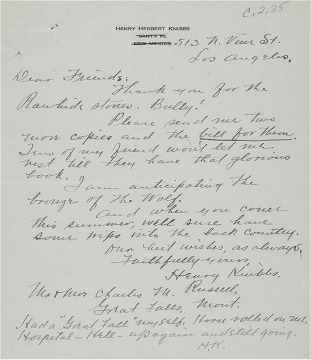 C, 2.35
HENRY HERBERT KNIBBS
SANTA FE
NEW MEXICO
513 N. Vine St.
Los Angeles,
Dear Friends;
Thank you for the
Rawhide stories. Bully!
Please send me two
more copies and the bill for them.
Two of my friend won't let me
rest till they have that glorious
book.
I am anticipating the
bronze of The Wolf.
And when you come
this summer, will sure have
some trips into the back country.
Our best wishes, as always,
Faithfully yours,
Henry Knibbs.
Mr & Mrs Charles M. Russell,
Great Falls, Mont.
Had a "Great Fall" myself. Horse rolled on me.
Hospital - Hell - up again and still going.
H.K.